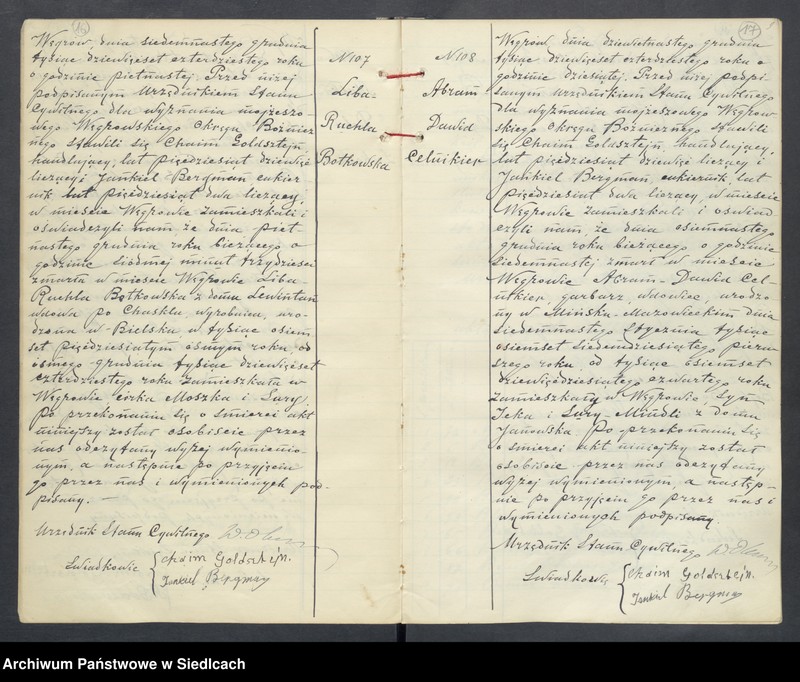 16
Węgrów, dnia siedemnastego grudnia
tysiąc dziewięćset czterdziestego roku
o godzinie piętnastej. Przed niżej
podpisanym Urzędnikiem Stanu
Cywilnego dla wyznania mojżeszo-
wego Węgrowskiego Okręgu Bożnicz-
nego stawili się Chaim Goldsztejn,
handlujący, lat pięćdziesiąt dziewięć
liczący i Jankiel Bergman cukier
nik lat pięćdziesiąt dwa liczący,
w mieście Węgrowie zamieszkali i
oświadczyli nam, że dnia pięt-
nastego grudnia roku bieżącego o
godzinie siódmej minut trzydzieści
zmarła w mieście Węgrowie Liba-
Ruchla Botkowska z domu Lewintan
wdowa po Chasklu, wyrobnica, uro-
dzona w Bielsku w tysiąc osiem-
set pięćdziesiątym ósmym roku, od
ósmego grudnia tysiąc dziewięćset
czterdziestego roku zamieszkała w
Węgrowie córka Moszka i Sury,
Po przekonaniu się o śmierci akt
niniejszy został osobiście przez
nas odczytany wyżej wymienio-
nym, a następnie po przyjęciu
go przez nas i wymienionych pod-
pisany. —
Urzędnik Stanu Cywilnego
Świadkowie
Chaim Goldsztejn.
Jankiel Bergman
N 107
Liba-
Ruchla
Botkowska
N 108
Abram
Dawid
Celnikier
17
Węgrów, dnia dziewiętnastego grudnia
tysiąc dziewięćset czterdziestego roku o
godzinie dziesiątej. Przed niżej podpi-
sanym Urzędnikiem Stanu Cywilnego
dla wyznania mojżeszowego Węgrow-
skiego Okręgu Bożnicznego stawili
się Chaim Goldsztejn, handlujący,
lat pięćdziesiąt dziewięć liczący i
Jankiel Bergman, cukiernik lat
pięćdziesiąt dwa liczący, w mieście
Węgrowie zamieszkali i oświad-
czyli nam, że dnia osiemnastego
grudnia roku bieżącego o godzinie
siedemnastej zmarł w mieście
Węgrowie Abram-Dawid Cel-
nikier, garbarz, wdowiec, urodzo
ny w Mińsku-Mazowieckim dnia
siedemnastego Stycznia tysiąc
osiemset siedemdziesiątego pierw
szego roku, od tysiąc osiemset
dziewięćdziesiątego czwartego roku
zamieszkały w Węgrowie, syn
Icka i Sury-Mindli z domu
Janowska Po przekonaniu się
o śmierci akt niniejszy został
osobiście przez nas odczytany
wyżej wymienionym, a następ-
nie po przyjęciu go przez nas i
wymienionych podpisany.
Urzędnik Stanu Cywilnego
Świadkowie
Chaim Goldsztejn.
Jankiel Bergman
Archiwum Państwowe w Siedlcach